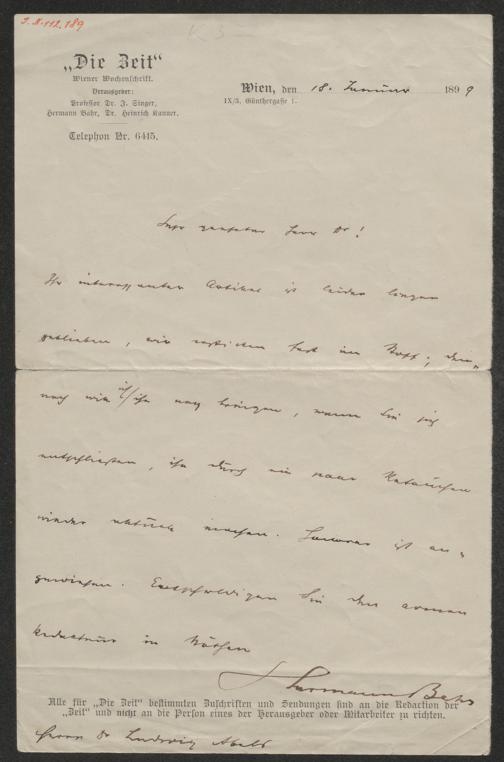 I.N. 112.189
„Die Zeit“
Wiener Wochenschrift.
Herausgeber:
Professor Dr. I. Singer,
Hermann Bahr, Dr. Heinrich Kanner.
Telephon Nr. 6415.
Wien, den 18. Januar 1899
IX/3, Günthergasse 1.
Sehr geehrter Herr Dr!
Ihr interessanter Artikel ist leider liegen
geblieben, wir ersticken fast im Stoff; den-
noch will ich ihn noch bringen, wenn Sie sich
entschließen, ihn durch ein paar Retouchen
wieder aktuell machen. Honorar ist an-
gewiesen. Entschuldigen Sie den armen
Redacteur in Nöthen
Hermann Bahr
Alle für „Die Zeit“ bestimmten Zuschriften und Sendungen sind an die Redaction der
„Zeit“ und nicht an die Person eines der Herausgeber oder Mitarbeiter zu richten.
Herrn Dr Ludwig Abels